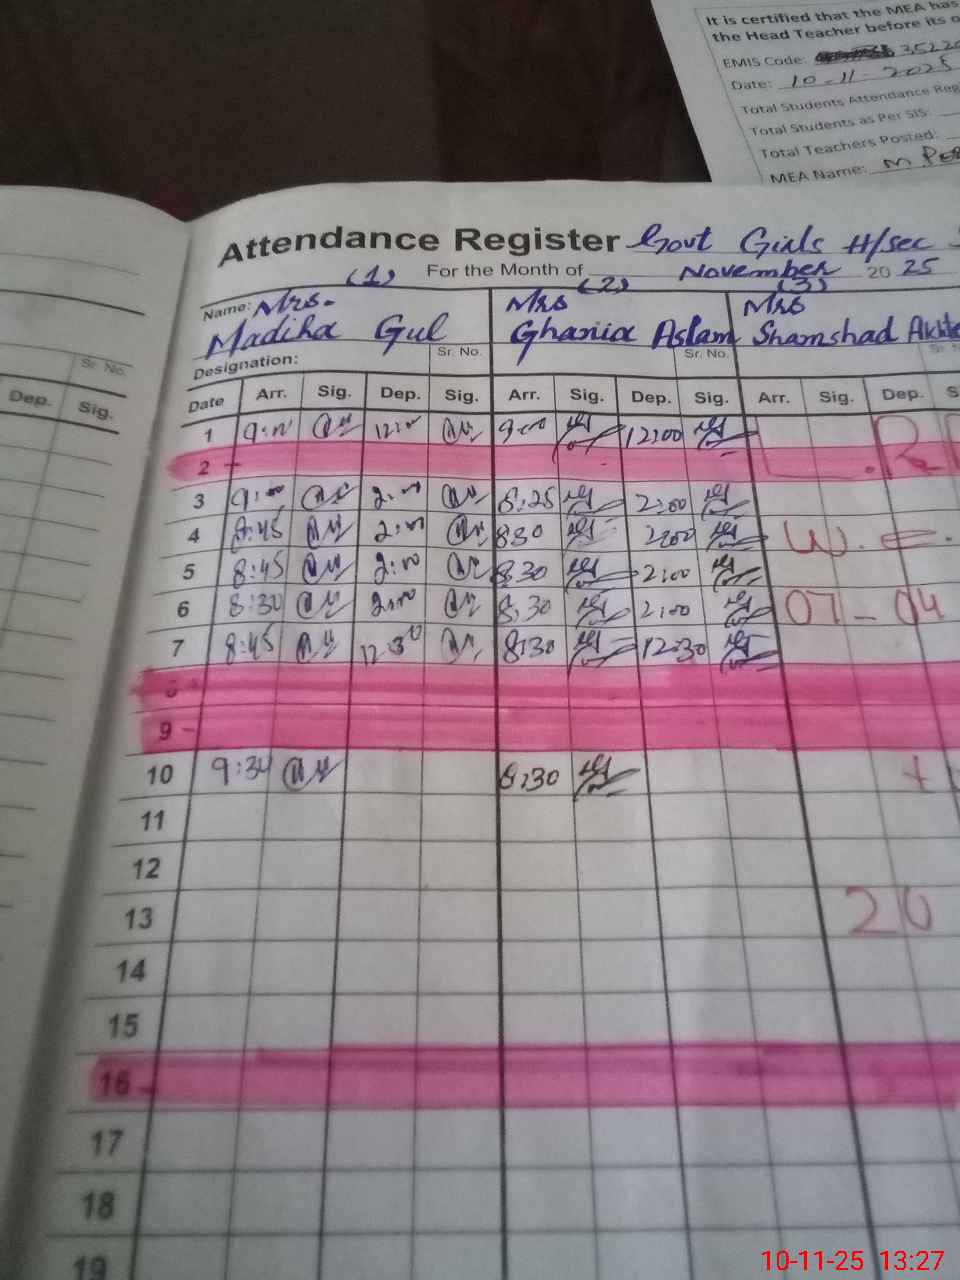 It is certified that the MEA has
the Head Teacher before its o
EMIS Code: 3522
Date: 10-11-2025
Total Students Attendance Reg
Total Students as Per SIS:
Total Teachers Posted:
MEA Name: M
Attendance Register Govt Girls H/sec
For the Month of November 2025
(1) (2) (3)
Name: Mrs. Mrs Mrs
Madiha Gul Ghania Aslam Shamshad
Sr. No. Sr. No. Sr. No.
Designation:
Dep. Sig.
Date Arr. Sig. Dep. Sig. Arr. Sig. Dep. Sig. Arr. Sig. Dep. S
1 9:00 12:00 9:00 12:00 L.R
2
3 9:00 2:00 8:25 2:00
4 8:45 2:00 830 2:00 W.E.
5 8:45 2:00 8:30 2:00
6 8:30 2:00 8:30 2:00 07-04
7 8:45 12:30 8:30 12:30
8
9
10 9:30 8:30
11
12
13 20
14
15
16
17
18
19
10-11-25 13:27